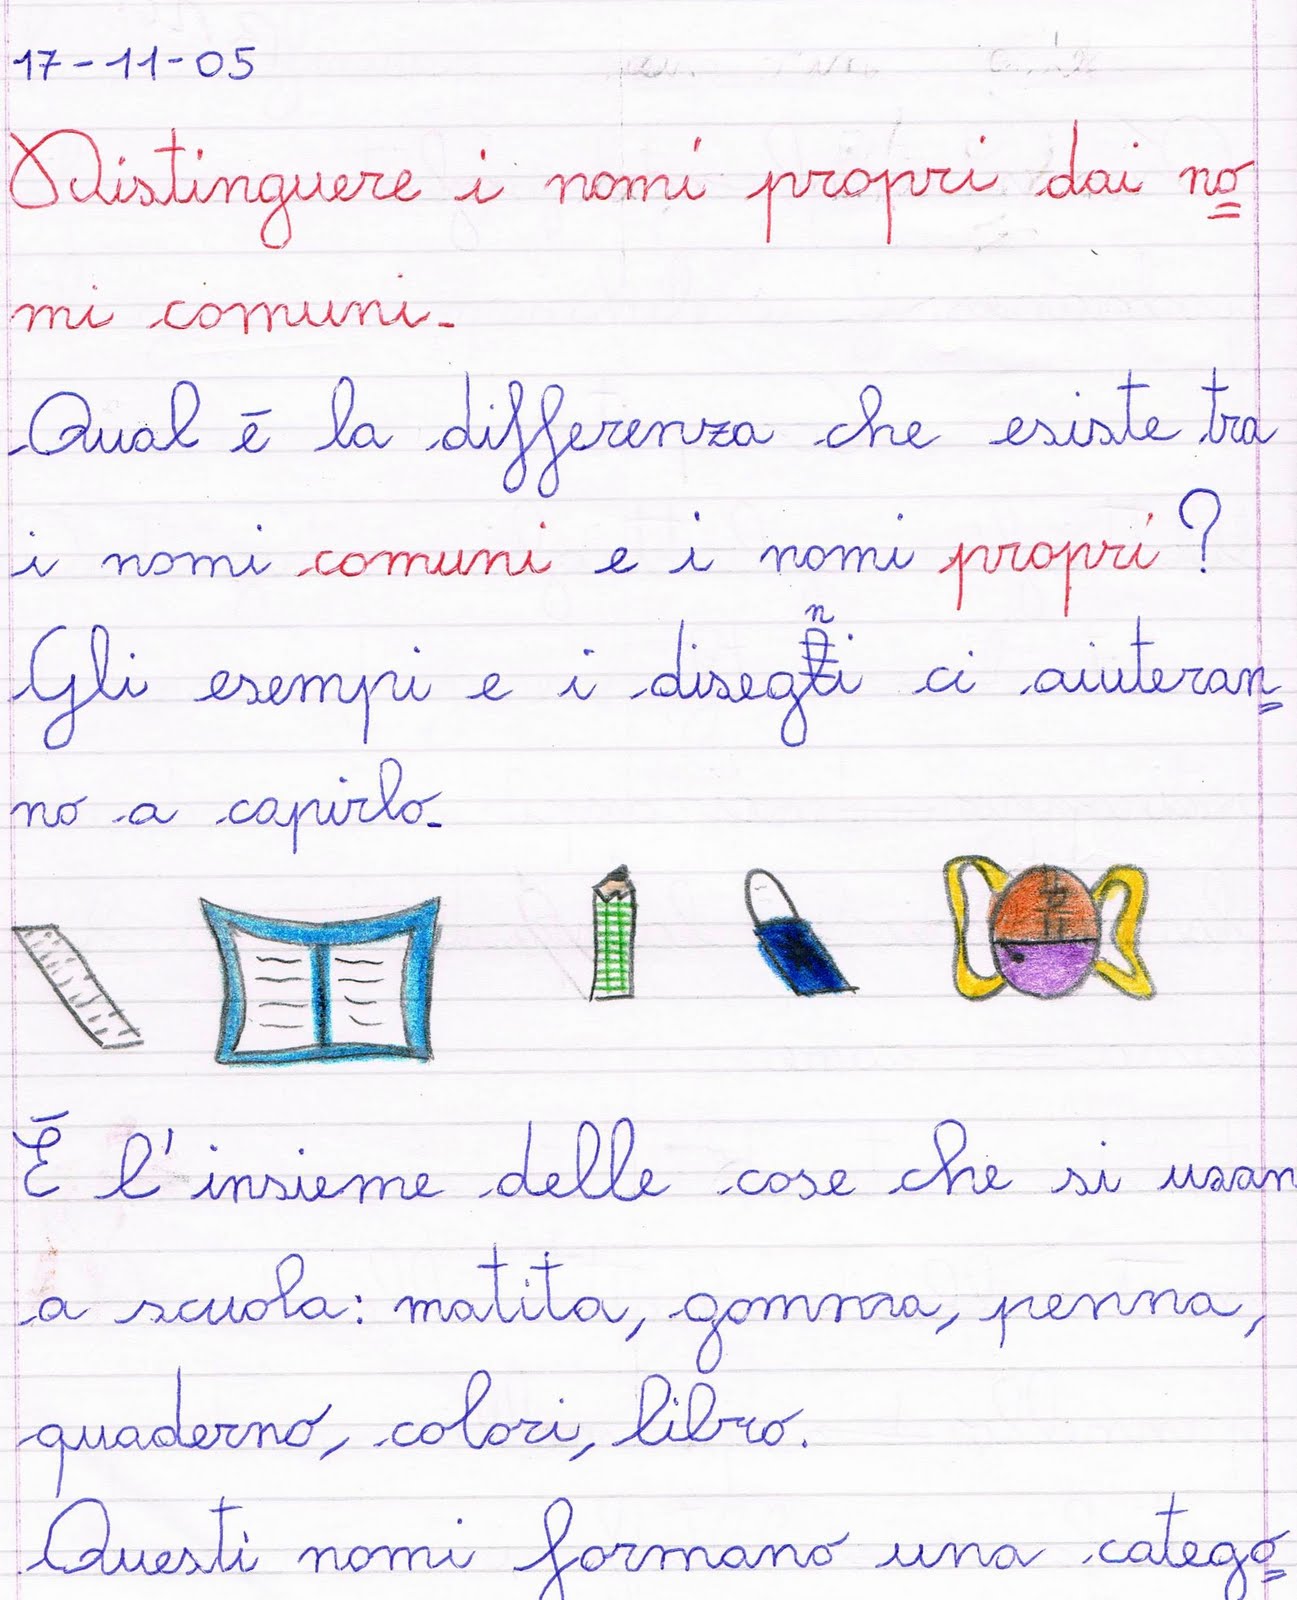 17-11-05
Distinguere i nomi propri dai no=
mi comuni.
Qual è la differenza che esiste tra
i nomi comuni e i nomi propri?
Gli esempi e i disegni ci aiuteran=
no a capirlo.
È l'insieme delle cose che si usan
a scuola: matita, gomma, penna,
quaderno, colori, libro.
Questi nomi formano una catego=